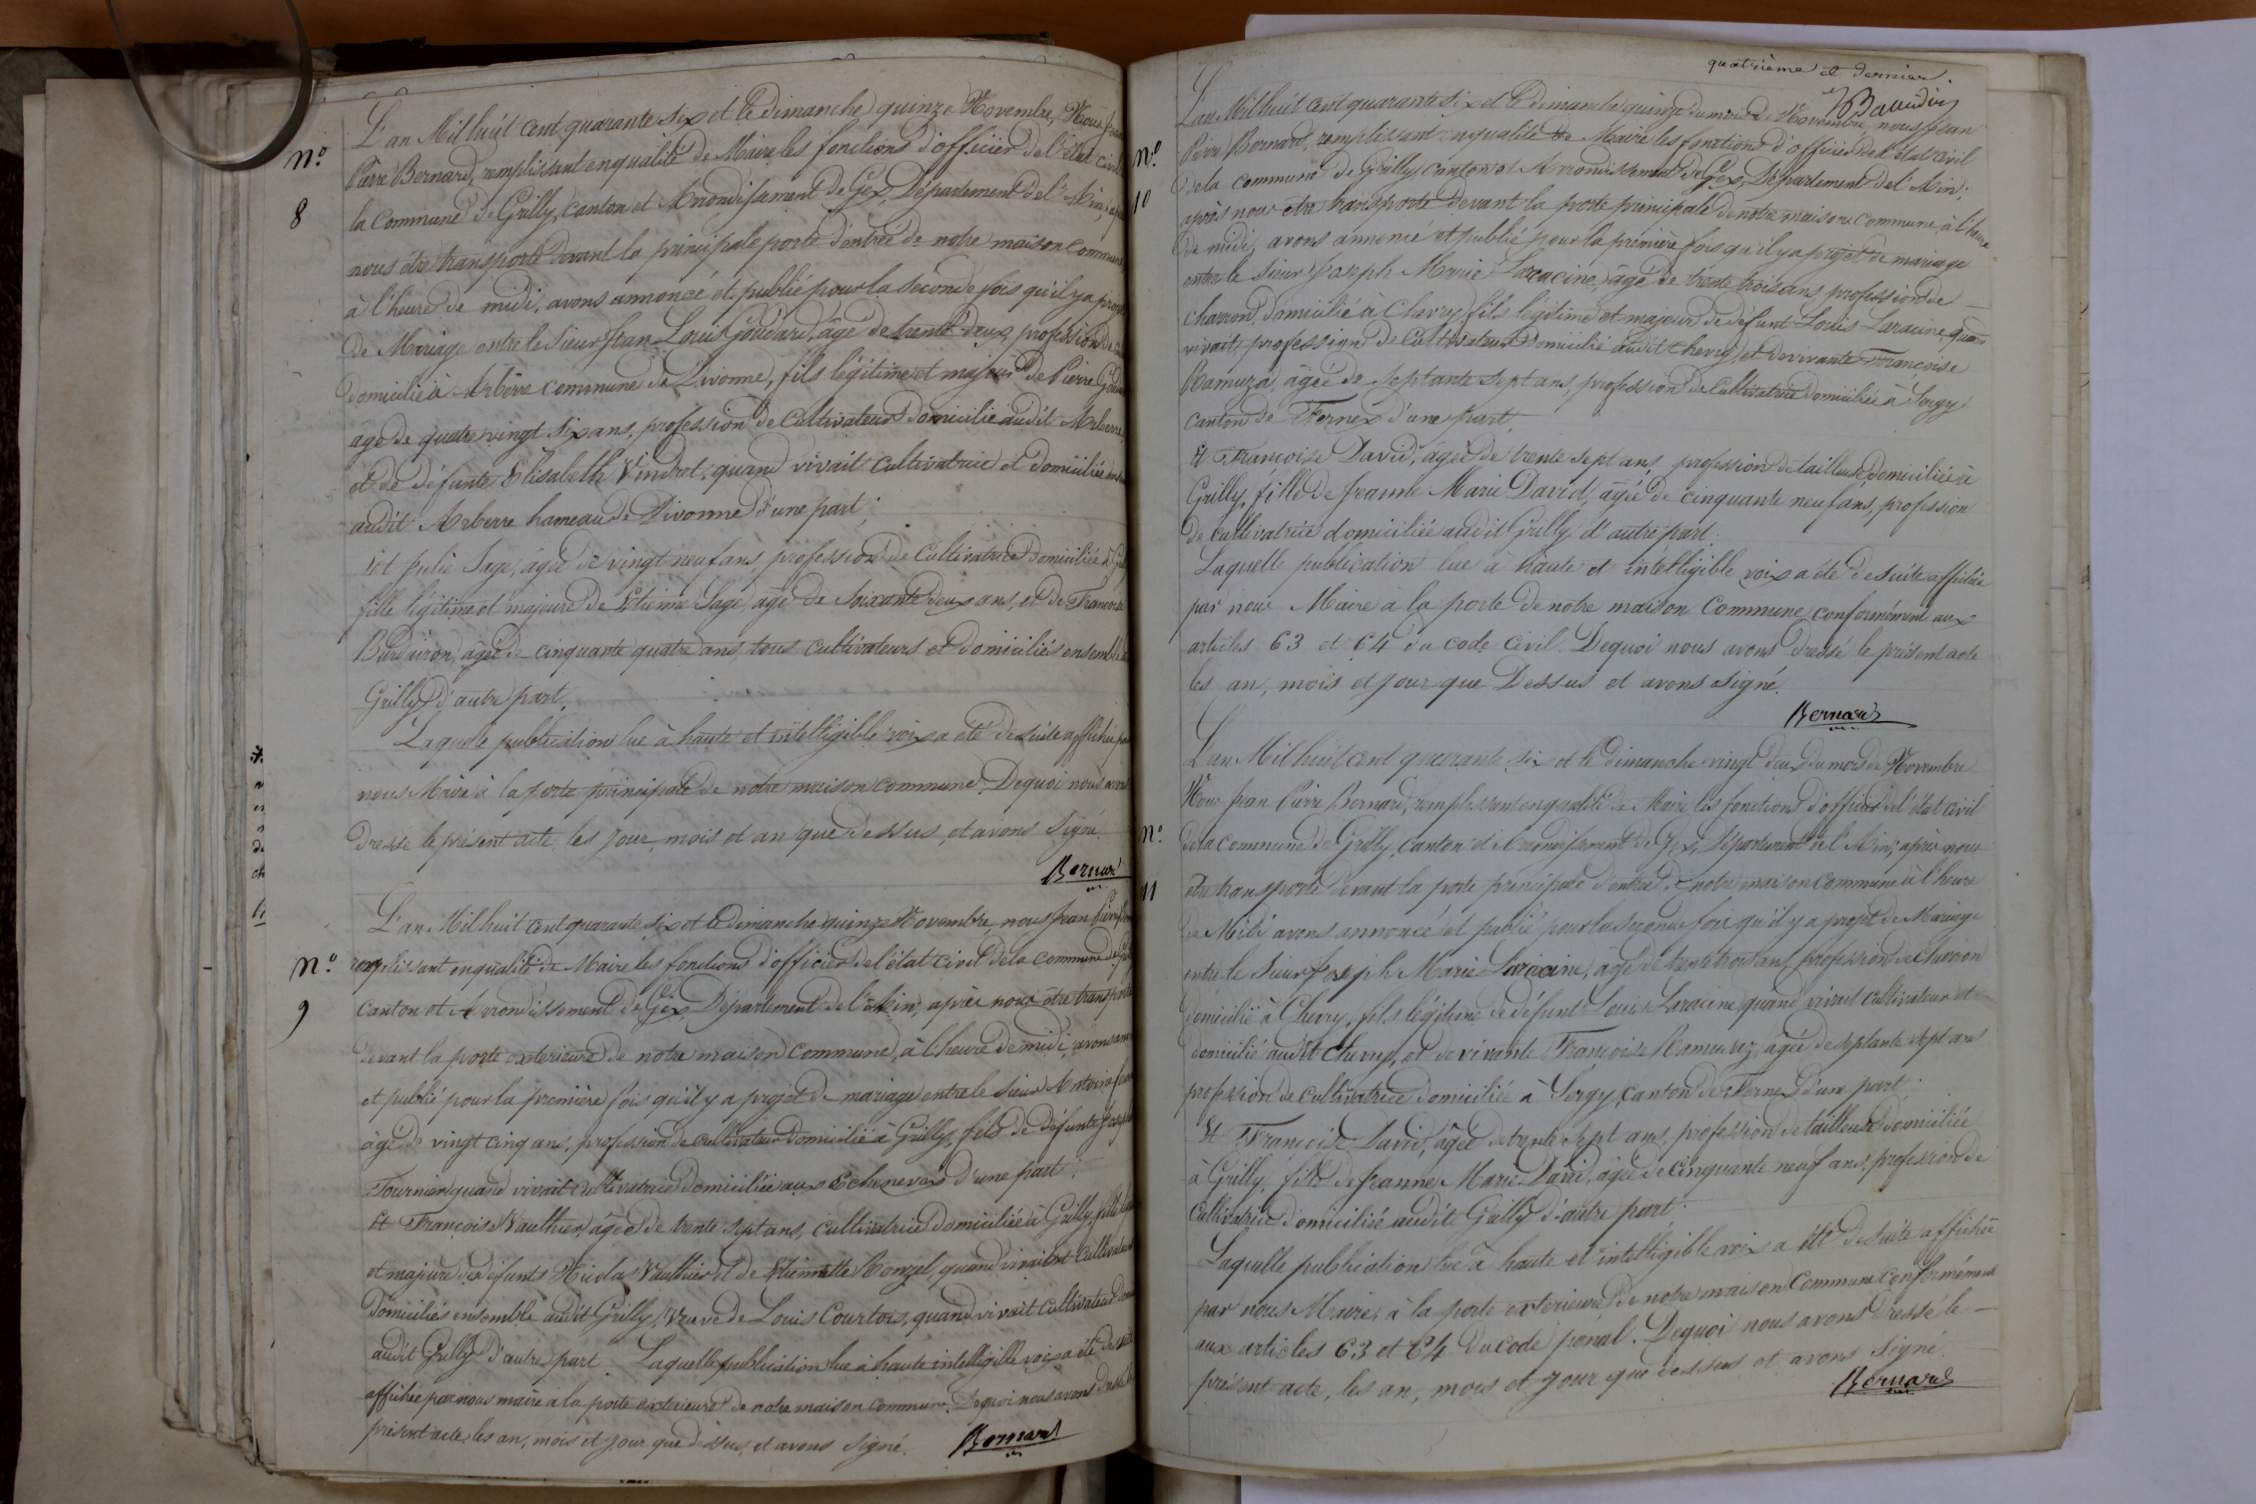 N.o
8
L'an Mil huit cent quarante six et le dimanche quinze Novembre, Nous Jean
Pierre Bernard, remplissant en qualité de Maire les fonctions d'officier de l'état civil
la commune de Grilly, canton et Arrondissement de Gex, Département de l'Ain, après
nous être transporté devant la principale porte d'entrée de notre maison commune
à l'heure de midi, avons annoncé et publié pour la seconde fois qu'il y a projet
de Mariage entre le Sieur Jean Louis Goudard, âgé de trente deux, profession de
domicilié à Arbère commune de Divonne, fils légitime et majeur de Pierre
age de quatre vingt six ans, profession de Cultivateur domicilié audit Arberre
et de défunte Elisabeth Vindret, quand vivait Cultivatrice et domiciliée
audit Arberre hameau de Divonne d'une part.
Et Julie Sage, âgée de vingt neuf ans, profession de Cultivatrice domiciliée à
fille légitime et majeure de Etienne Sage, âgé de Soixante deux ans, et de
âgée de cinquante quatre ans, tous cultivateurs et domiciliés ensemble
Grilly d'autre part.
Laquelle publication lue à haute et intelligible voix a été de suite affichée par
nous Maire à la porte principale de notre maison commune. Dequoi nous avons
Dressé le présent acte, les jour, mois et an que dessus, et avons signé.
Bernard
N.o
9
L'an Mil huit cent quarante six et le dimanche quinze Novembre, nous Jean Pierre
remplissant en qualité de Maire les fonctions d'officier de l'état civil de la commune de
Canton et Arrondissement de Gex, Département de l'Ain, après nous être transporté
devant la porte exterieure de notre maison commune, à l'heure de midi, avons
et publié pour la première fois qu'il y a projet de mariage entre le Sieur
âgé de vingt cinq ans, profession de cultivateur domicilié à Grilly, fils de défunte
Fournier quand vivait cultivatrice domiciliée aux Echenevex d'une part.
Et Françoise Vauthier, âgée de trente sept ans, cultivatrice domiciliée à Grilly, fille
et majeure de défunts Nicolas Vauthier et de Etiennette quand vivaient Cultivateurs
Domiciliés ensemble audit Grilly, Veuve de Louis Courtois, quand vivait cultivateur
audit Grilly d'autre part. Laquelle publication lue à haute intelligible voix a été de suite
affichée par nous maire à la porte exterieure de notre maison commune. Dequoi nous avons
présent acte, les an, mois et jour que dessus, et avons signé.
Bernard
quatrième et dernier.
N.o
10
L'an Mil huit cent quarante six et le dimanche quinze du mois de Novembre, nous Jean
Pierre Bernard, remplissant en qualité de Maire les fonctions d'officier de l'état civil
de la commune de Grilly, canton et Arrondissement de Gex, Département de l'Ain,
après nous être transporté devant la porte principale de notre maison commune, à l'heure
de midi, avons annoncé et publié pour la première fois qu'il y a projet de mariage
entre le Sieur Joseph Marie Laracine, âgé de trente trois ans, profession de
charron, domicilié à Chevry, fils légitime et majeur de défunt Louis Laracine, quand
vivait, profession de Cultivateur domicilié audit Chevry, et de vivante Françoise
Ramuza, âgée de septante sept ans, profession de Cultivatrice domiciliée à Sergy
canton de Fernex d'une part.
Et Françoise David, âgée de trente sept ans, profession de tailleuse domiciliée à
Grilly, fille de Jeanne Marie David, âgée de cinquante neuf ans, profession
de cultivatrice domiciliée audit Grilly d'autre part.
Laquelle publication lue à haute et intelligible voix a été de suite affichée
par nous Maire a la porte de notre maison Commune, conformément aux
articles 63 et 64 du code civil. Dequoi nous avons dressé le présent acte
les an, mois et jour que Dessus et avons signé.
Bernard
N.o
11
L'an Mil huit cent quarante six et le dimanche vingt deux du mois de Novembre
Nous Jean Pierre Bernard, remplissant en qualité de Maire les fonctions d'officier de l'état civil
de la commune de Grilly, canton et Arrondissement de Gex, Département de l'Ain, après nous
être transporté devant la porte principale d'entrée de notre maison Commune à l'heure
de Midi avons annoncé et publié pour la seconde fois qu'il y a projet de Mariage
entre le Sieur Joseph Marie Laracine, âgé de trente trois ans, profession de charron
domicilié à Chevry, fils légitime de défunt Louis Laracine quand vivait cultivateur et
domicilié audit Chevry, et de vivante Françoise Ramuz, âgée de septante sept ans
profession de cultivatrice domiciliée à Sergy, canton de Fernex d'une part.
Et Françoise David, âgée de trente sept ans, profession de tailleuse domiciliée
à Grilly, fille de Jeanne Marie David, âgée de cinquante neuf ans, profession de
Cultivatrice domiciliée audit Grilly d'autre part.
Laquelle publication lue à haute et intelligible voix a été de suite affichée
par nous Maire, à la porte exterieure de notre maison Commune conformément
aux articles 63 et 64 du code pénal. Dequoi nous avons dressé le
présent acte, les an, mois et jour que dessus et avons signé.
Bernard